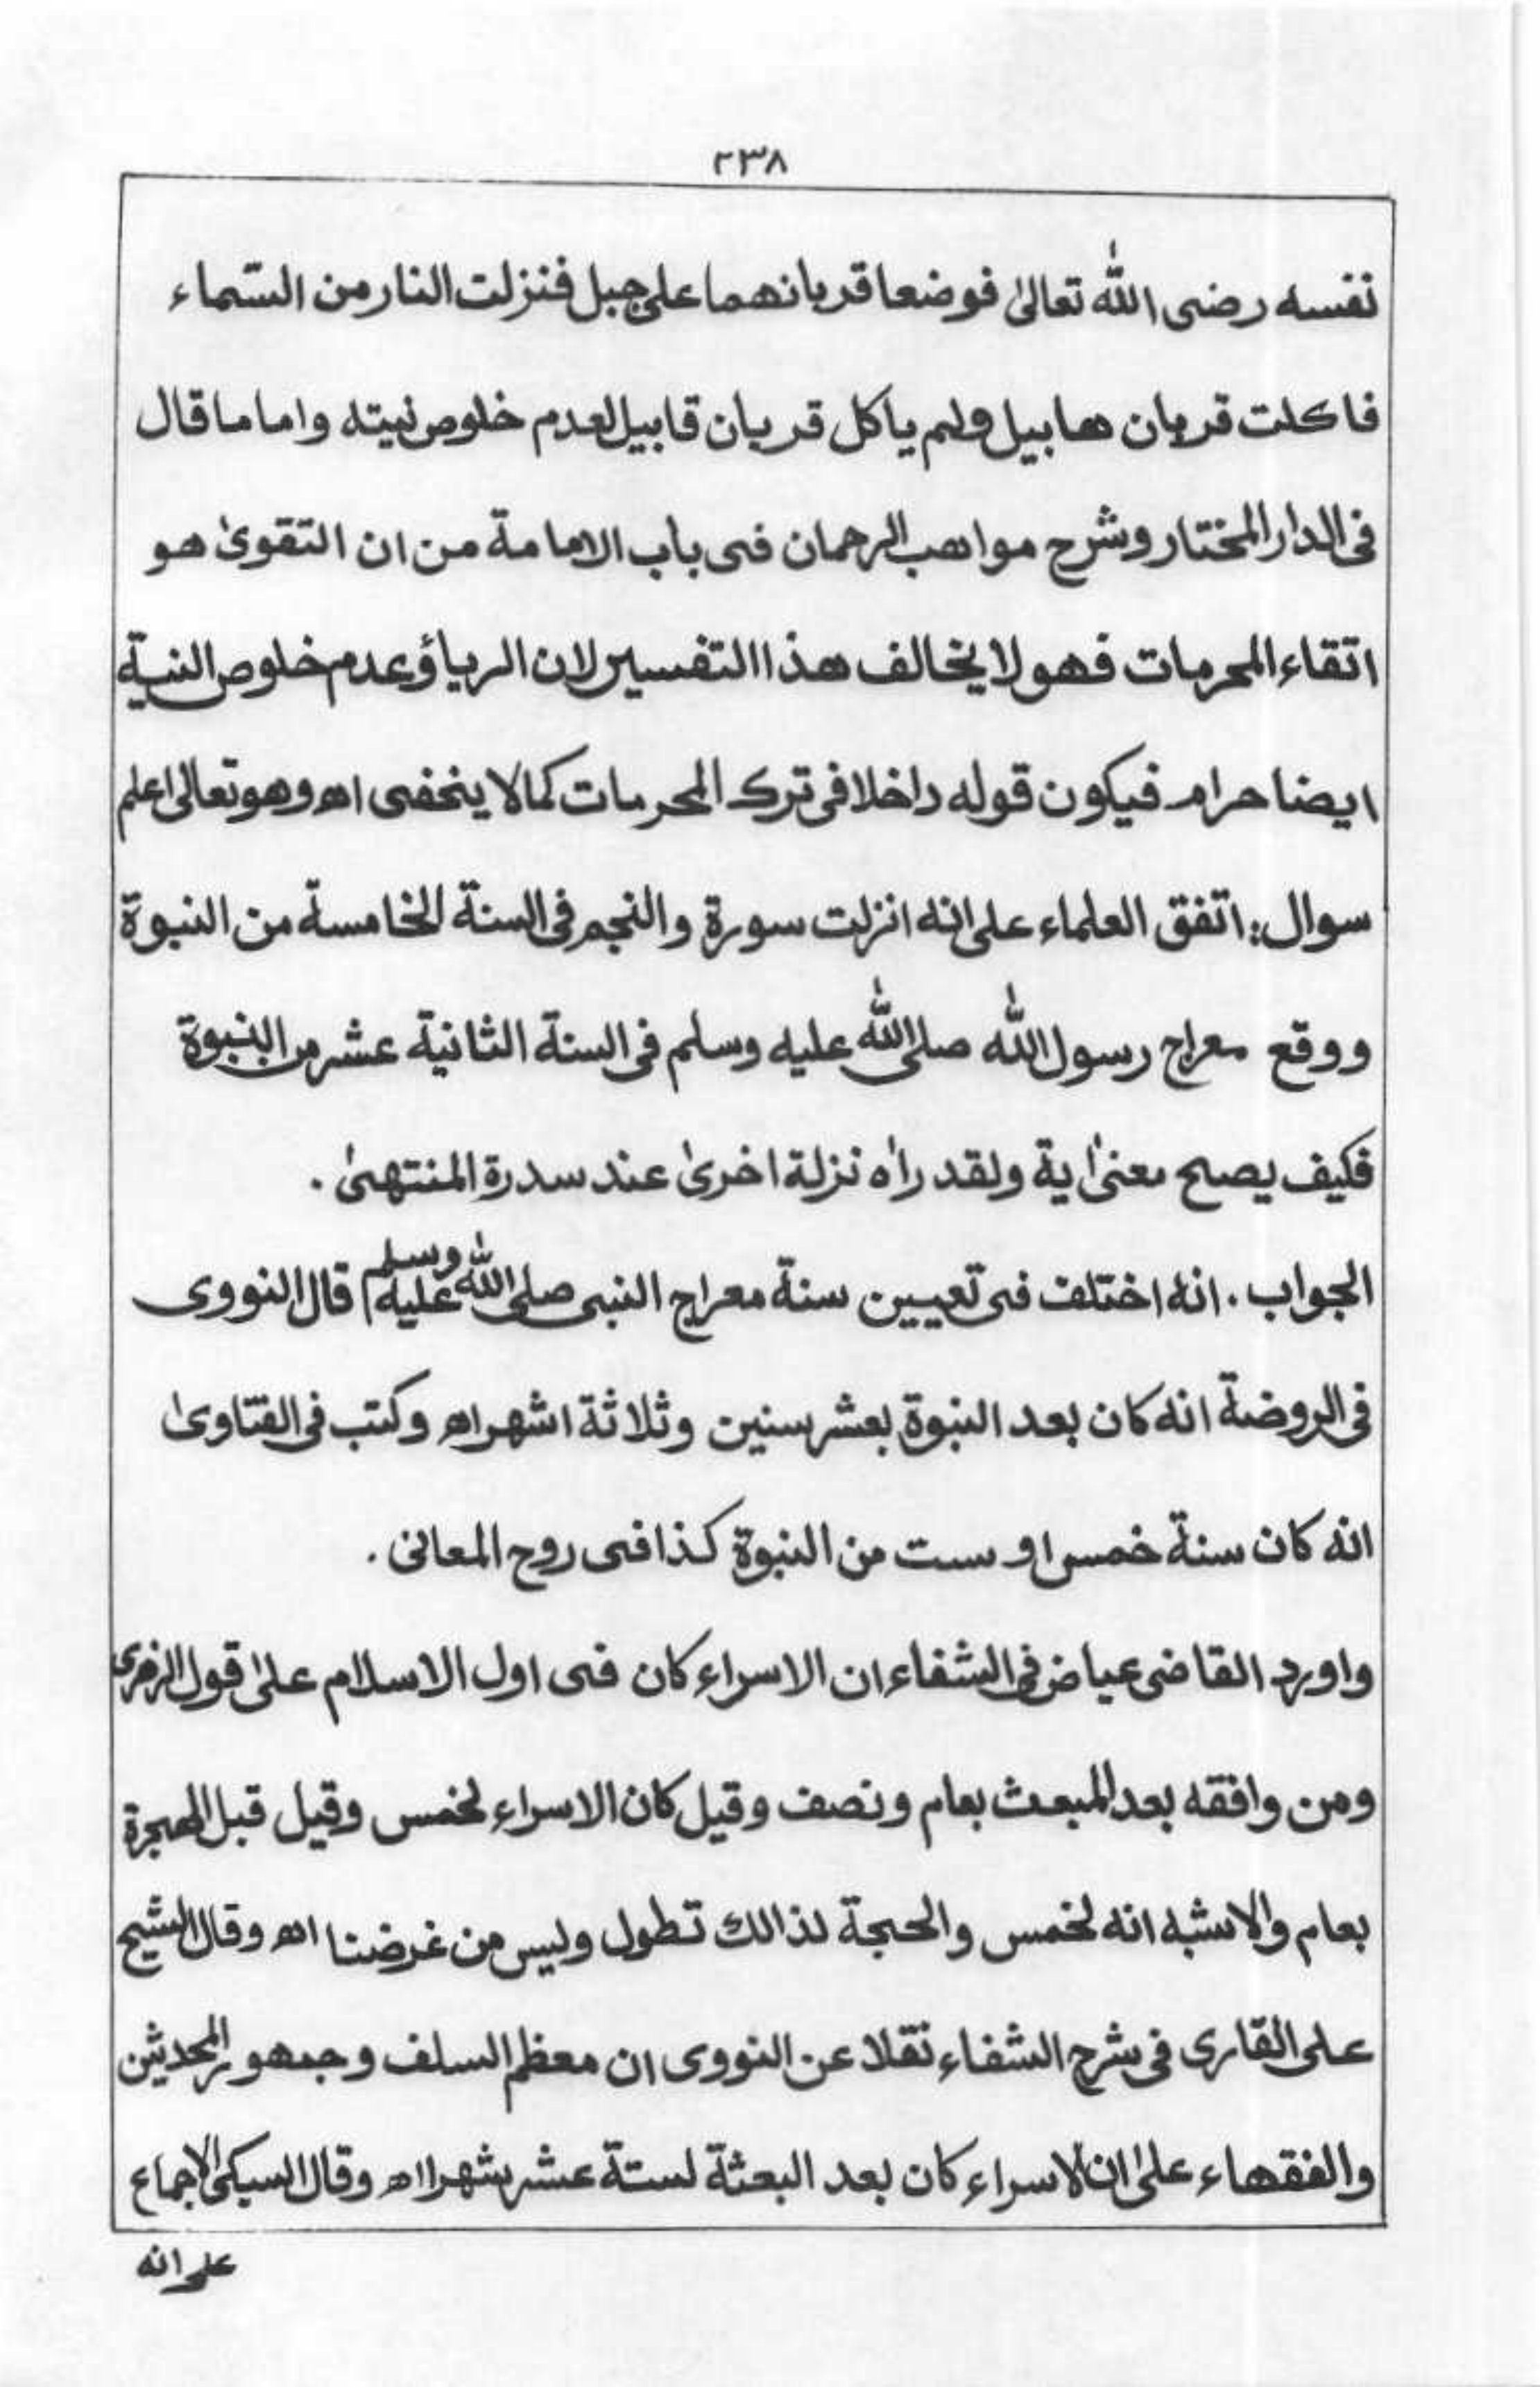 ٢٣٨
نفسه رضی اللّٰه تعالیٰ فوضعا قربانهما علی جبل فنزلت النار من السّماء
فاکلت قربان هابیل ولم یاکل قربان قابیل لعدم خلوص نیته واما ما قال
فی الدار المختار وشرح مواهب الرحمان فی باب الامامة من ان التقویٰ هو
اتقاء المحرمات فهو لا یخالف هذا التفسیر لان الریاؤ عدم خلوص النیة
ایضا حرام فیکون قوله داخلا فی ترک المحرمات کما لا ینخفی اھ وهو تعالیٰ اعلم
سوال: اتفق العلماء علی انه انزلت سورة والنجم فی السنة الخامسة من النبوة
ووقع معراج رسول اللّٰه صلی اللّٰه علیه وسلم فی السنة الثانیة عشر من النبوة
فکیف یصح معنیٰ ایة ولقد راٰه نزلة اخریٰ عند سدرة المنتهیٰ .
الجواب . انه اختلف فی تعیین سنة معراج النبی صلی اللّٰه علیه وسلم قال النووی
فی الروضة انه کان بعد النبوة بعشر سنین وثلاثة اشهر اھ وکتب فی الفتاویٰ
انه کان سنة خمس او ست من النبوة کذا فی روح المعانی .
واورد القاضی عیاض فی الشفاء ان الاسراء کان فی اول الاسلام علیٰ قول الزهری
ومن وافقه بعد المبعث بعام ونصف وقیل کان الاسراء لخمس وقیل قبل الهجرة
بعام والاشبه انه لخمس والحجة لذالك تطول ولیس من غرضنا اھ وقال الشیخ
علی القاری فی شرح الشفاء نقلا عن النووی ان معظم السلف وجمهور المحدثین
والفقهاء علیٰ ان الاسراء کان بعد البعثة لستة عشر شهرا اھ وقال السیکی الاجماع
علی انه